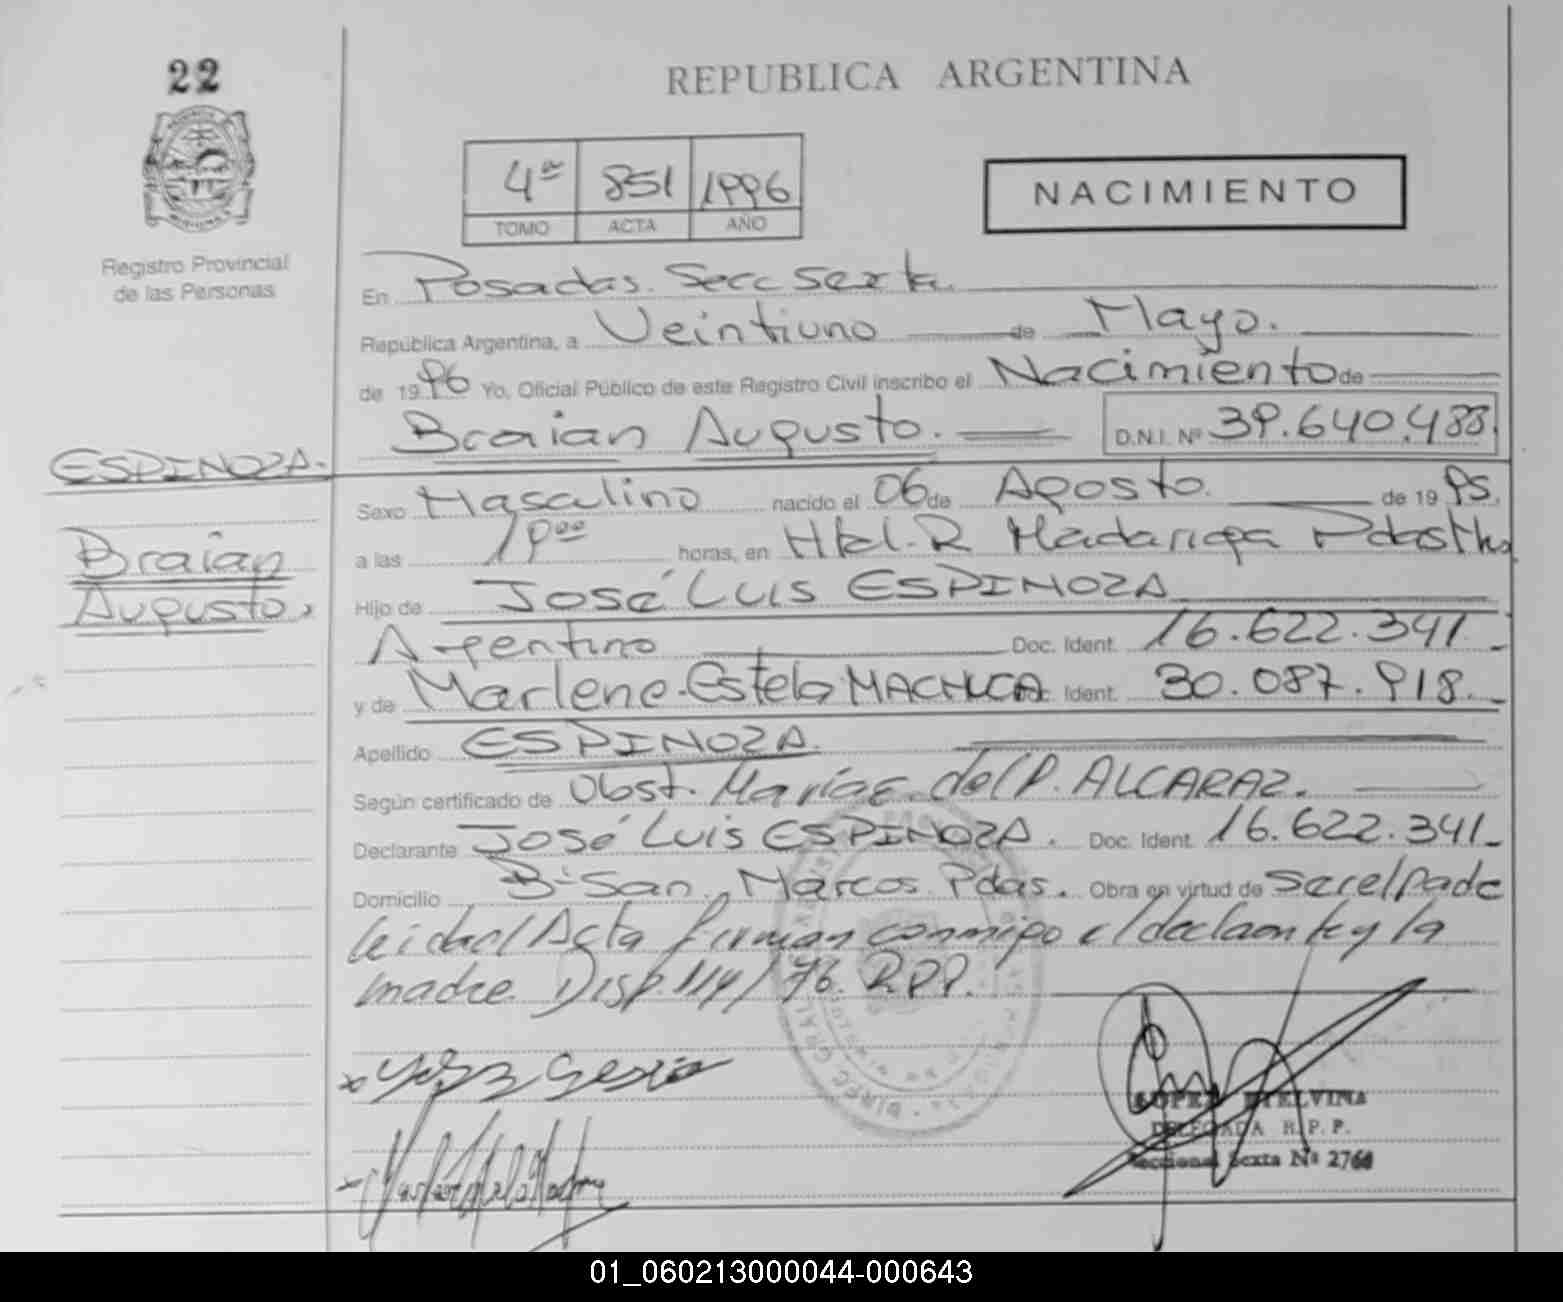 22
REPUBLICA ARGENTINA
4ª 851 1996
TOMO ACTA AÑO
NACIMIENTO
Registro Provincial
de las Personas
En Posadas. Secc Sexta.
República Argentina, a Veintiuno de Mayo.
de 1996 Yo, Oficial Público de este Registro Civil inscribo el Nacimiento de
Braian Augusto. D.N.I. Nº 39.640.488.
ESPINOZA.
Braian
Augusto.
Sexo Masculino nacido el 06 de Agosto. de 1995.
a las 19ºº horas, en Htal. R Madariaga Pdas Mnes
Hijo de José Luis ESPINOZA
Argentino Doc. Ident. 16.622.341
y de Marlene Estela MACHUCA Doc. Ident. 30.087.918.
Apellido ESPINOZA.
Según certificado de Obst. María del P. ALCARAZ.
Declarante José Luis ESPINOZA. Doc. Ident. 16.622.341
Domicilio Bº San Marcos Pdas. Obra en virtud de ser el padre
leida el Acta firman conmigo el declarante y la
madre Disp. 114/96. RPP.
LOPEZ ETELVINA
DELEGADA R. P. P.
Seccional Sexta Nº 2760
01_060213000044-000643